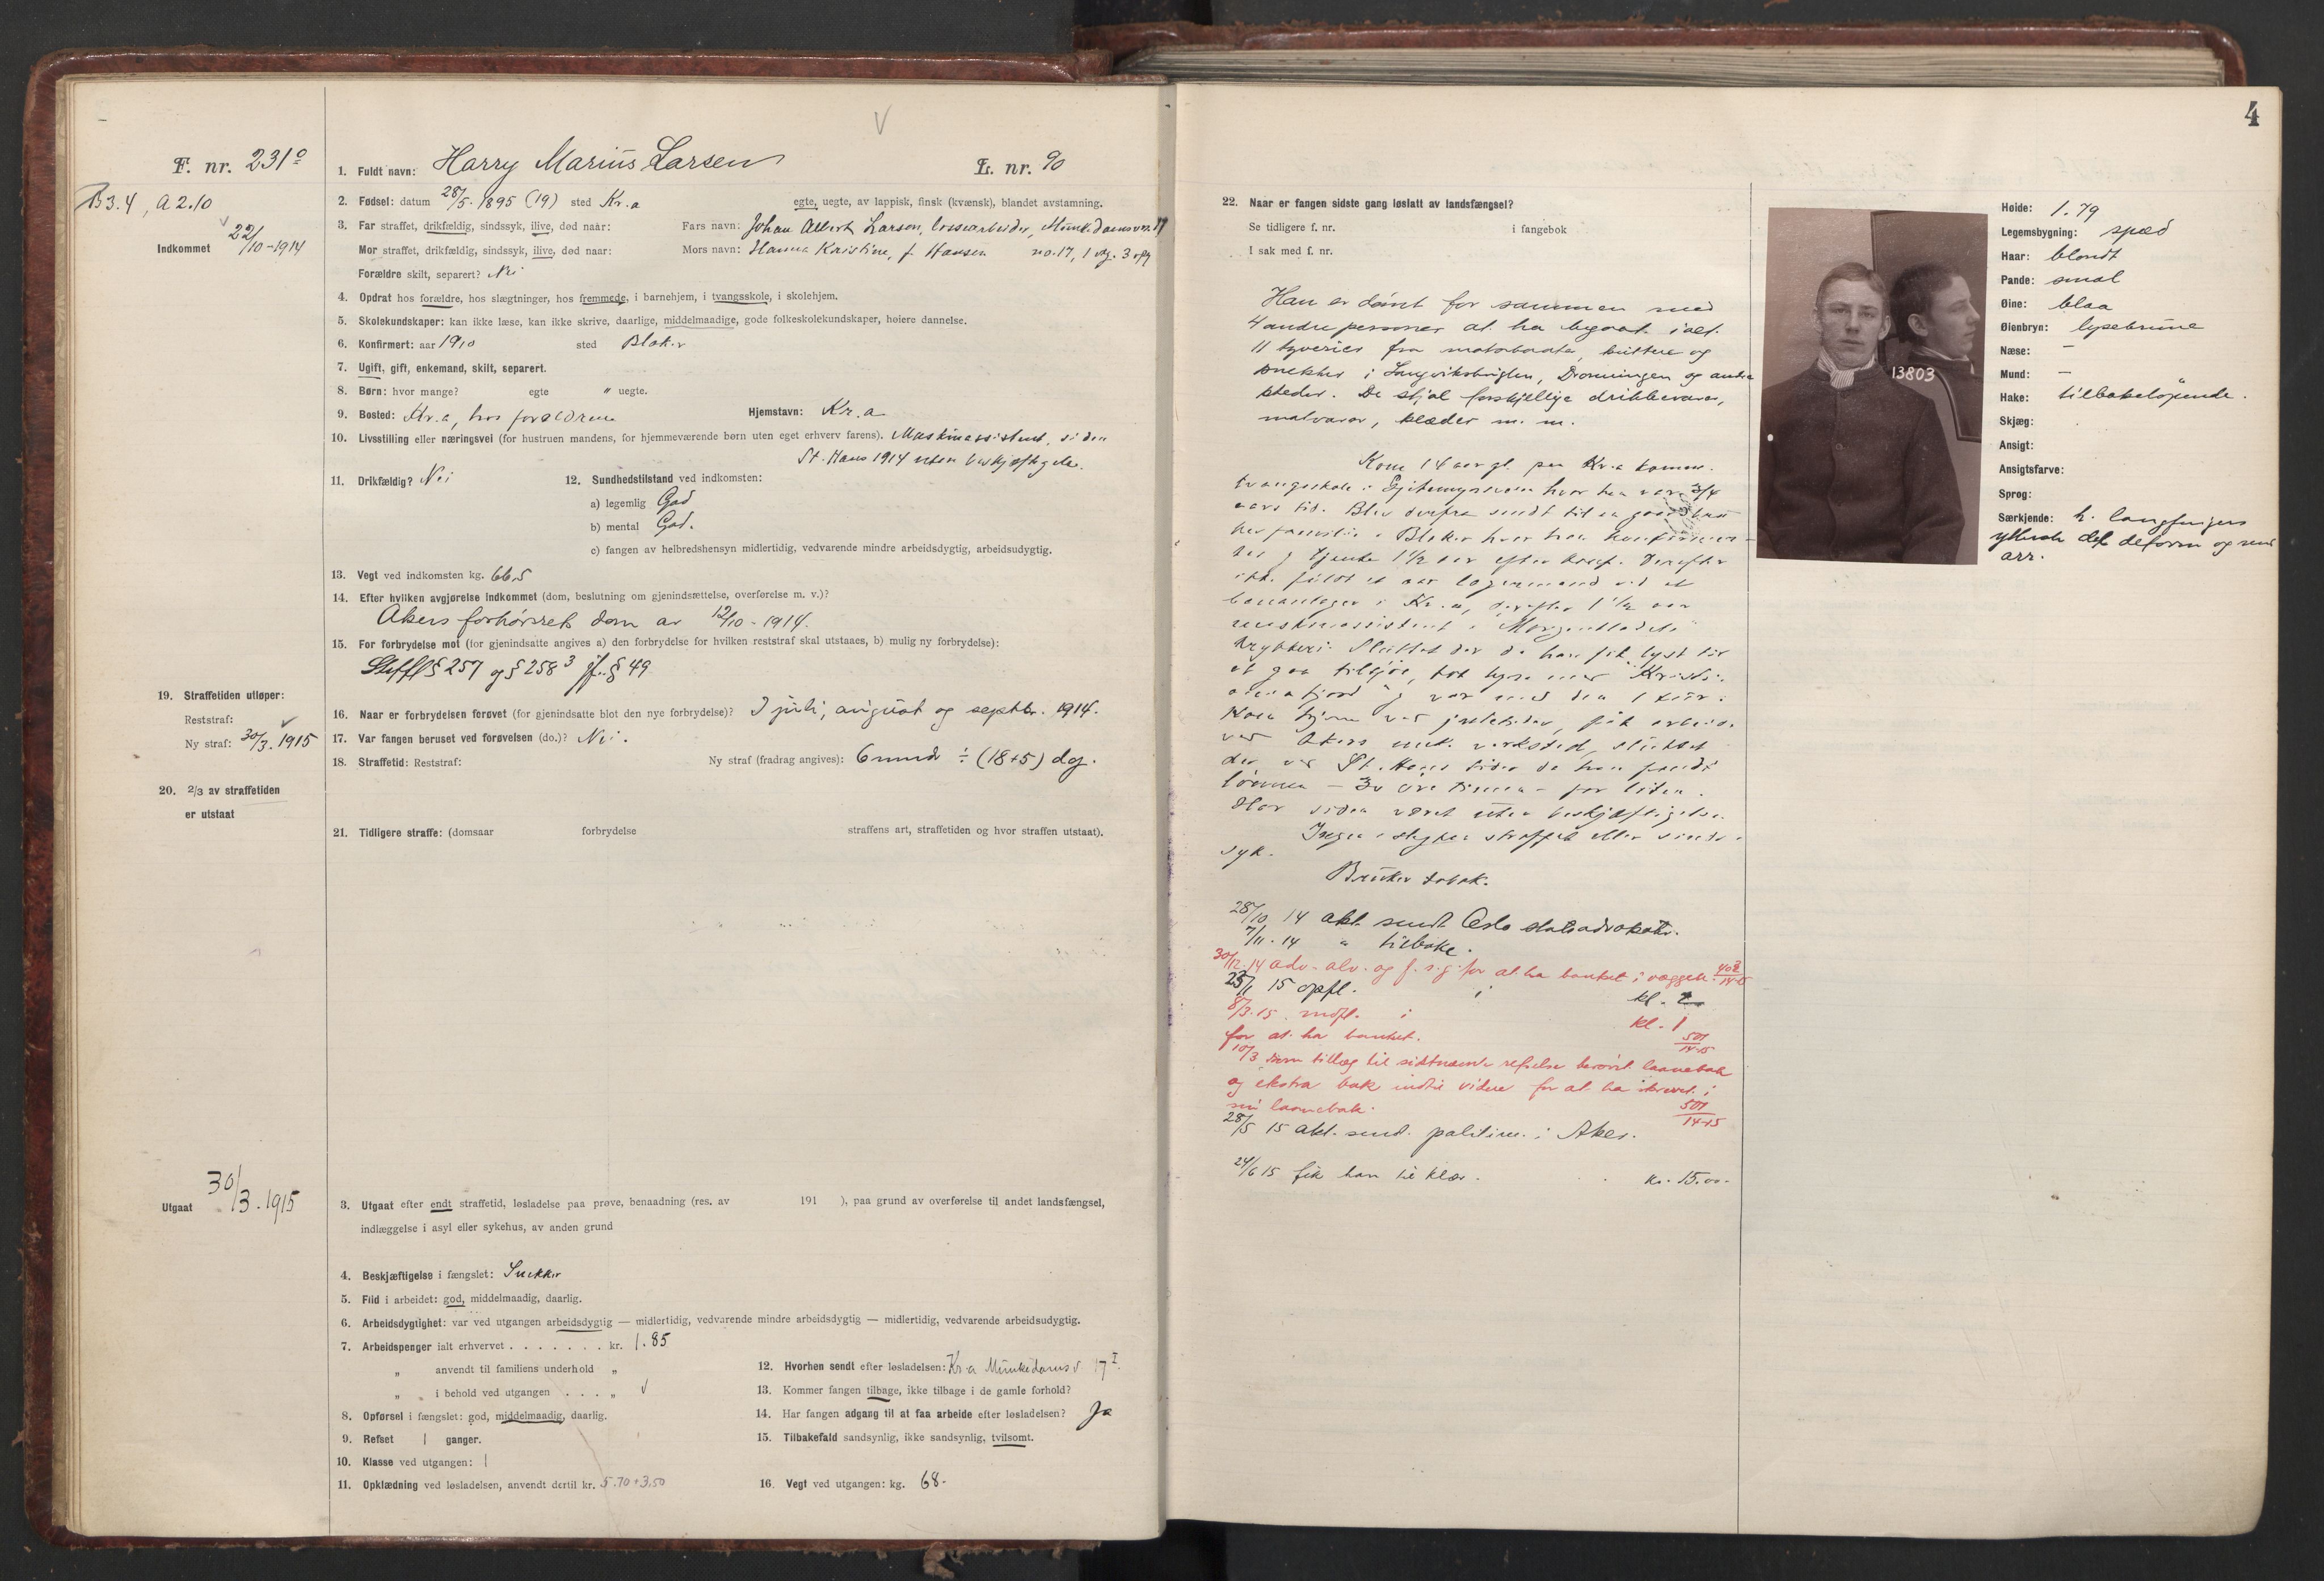 4
F. nr. 231º
B 3.4, A 2.10
Indkommet 22/10-1914
1. Fuldt navn: Harry Marius Larsen L. nr. 90
2. Fødsel: datum 28/5. 1895 (19) sted Kr.a egte, uegte, av lappisk, finsk (kvænsk), blandet avstamning.
3. Far straffet, drikfældig, sindssyk, ilive, død naar: Fars navn: Johan Albert Larsen, lossearbeider, Munkedamsvn. 17
Mor straffet, drikfældig, sindssyk, ilive, død naar: Mors navn: Hanna Kristine, f. Hansen no. 17, 1 etg. 3 opg
Forældre skilt, separert? Nei
4. Opdrat hos forældre, hos slægtninger, hos fremmede, i barnehjem, i tvangsskole, i skolehjem.
5. Skolekundskaper: kan ikke læse, kan ikke skrive, daarlige, middelmaadige, gode folkeskolekundskaper, høiere dannelse.
6. Konfirmert: aar 1910 sted Blaker
7. Ugift, gift, enkemand, skilt, separert.
8. Børn: hvor mange? egte " uegte.
9. Bosted: Kr.a, hos forældrene Hjemstavn: Kr.a
10. Livsstilling eller næringsvei (for hustruen mandens, for hjemmeværende børn uten eget erhverv farens). Maskinassistent, siden
St. Hans 1914 uten beskjæftigelse.
11. Drikfældig? Nei 12. Sundhedstilstand ved indkomsten:
a) legemlig God
b) mental God.
c) fangen av helbredshensyn midlertidig, vedvarende mindre arbeidsdygtig, arbeidsudygtig.
13. Vegt ved indkomsten kg. 66.5
14. Efter hvilken avgjørelse indkommet (dom, beslutning om gjenindsættelse, overførelse m. v.)?
Akers forhørsrets dom av 12/10-1914.
15. For forbrydelse mot (for gjenindsatte angives a) den forbrydelse for hvilken reststraf skal utstaaes, b) mulig ny forbrydelse):
Strffl § 257 og § 258 3 jf. § 49
16. Naar er forbrydelsen forøvet (for gjenindsatte blot den nye forbrydelse)? I juli, august og septbr. 1914.
17. Var fangen beruset ved forøvelsen (do.)? Nei.
18. Straffetid: Reststraf: Ny straf (fradrag angives): 6 mndr ÷ (18+5) dg.
19. Straffetiden utløper:
Reststraf:
Ny straf: 30/3. 1915
20. 2/3 av straffetiden
er utstaat
21. Tidligere straffe: (domsaar forbrydelse straffens art, straffetiden og hvor straffen utstaat).
Utgaat 30/3. 1915
3. Utgaat efter endt straffetid, løsladelse paa prøve, benaadning (res. av 191 ), paa grund av overførelse til andet landsfængsel,
indlæggelse i asyl eller sykehus, av anden grund
4. Beskjæftigelse i fængslet: Snekker
5. Flid i arbeidet: god, middelmaadig, daarlig.
6. Arbeidsdygtighet: var ved utgangen arbeidsdygtig — midlertidig, vedvarende mindre arbeidsdygtig — midlertidig, vedvarende arbeidsudygtig.
7. Arbeidspenger ialt erhvervet . . . . . . . kr. 1.85
" anvendt til familiens underhold "
" i behold ved utgangen . . . "
8. Opførsel i fængslet: god, middelmaadig, daarlig.
9. Refset 1 ganger.
10. Klasse ved utgangen: 1
11. Opklædning ved løsladelsen, anvendt dertil kr. 5.70+3.50
12. Hvorhen sendt efter løsladelsen: Kr.a Munkedamsv. 17 I.
13. Kommer fangen tilbage, ikke tilbage i de gamle forhold?
14. Har fangen adgang til at faa arbeide efter løsladelsen? Ja
15. Tilbakefald sandsynlig, ikke sandsynlig, tvilsomt.
16. Vegt ved utgangen: kg. 68.
22. Naar er fangen sidste gang løslatt av landsfængsel?
Se tidligere f. nr. i fangebok
I sak med f. nr.
Han er dømt for sammen med
4 andre personer at ha begaat ialt
11 tyverier fra motorbaater, hytter og
snekker i Langviksbugten, Dronningen og andre
steder. De stjal forskjellige drikkevarer,
matvarer, klæder m. m.
Kom 14 aar gl. paa Kr.a komm.
tvangsskole i hvor han var 3/4
aars tid. Blev derfra sendt til en
familie i Blaker hvor han
og tjente 1 1/2 aar efter konf. Derefter
aar lagermand ved et
i Kr.a, derefter 1 1/2 aar
maskinassistent i "Morgenbladets"
trykkeri. Sluttet der da han fik lyst til
at gaa tilsjøs, tok hyre med "Kristi-
aniafjord" og var med den 1 tur.
Kom hjem ved juletider, fik arbeide
ved Akers mek. verksted, sluttet
der ved St. Hans tider da han fandt
lønnen – 30 øre timen – for liten.
Har siden været uten beskjæftigelse.
Ingen i slegten straffet eller sinds-
syk.
Bruker tobak.
28/10 14 akt. sendt Oslo statsadvokater.
7/11-14 " tilbake.
30/12-14 adv. alv. og f. s. g. for at ha banket i væggen. 403/14-15
25/1 15 opfl. i kl. 2
8/3-15. nedfl. i kl. 1
for at ha banket. 501/14-15
10/3 som tillæg til sidtnævnte refselse berøvet laanebok
og ekstra bok indtil videre for at ha skrevet i
sin laanebok. 501/14-15
28/5 15 akt. sendt politim. i Aker.
24/6 15 fik han til klær. kr. 15.00.
13803
Høide: 1.79
Legemsbygning: spæd
Haar: blondt
Pande: smal
Øine: blaa
Øienbryn: lysebrune
Næse: –
Mund: –
Hake: tilbakeløpende.
Skjæg:
Ansigt:
Ansigtsfarve:
Sprog:
Særkjende: h. langfingers
ytterste del deform og med
arr.